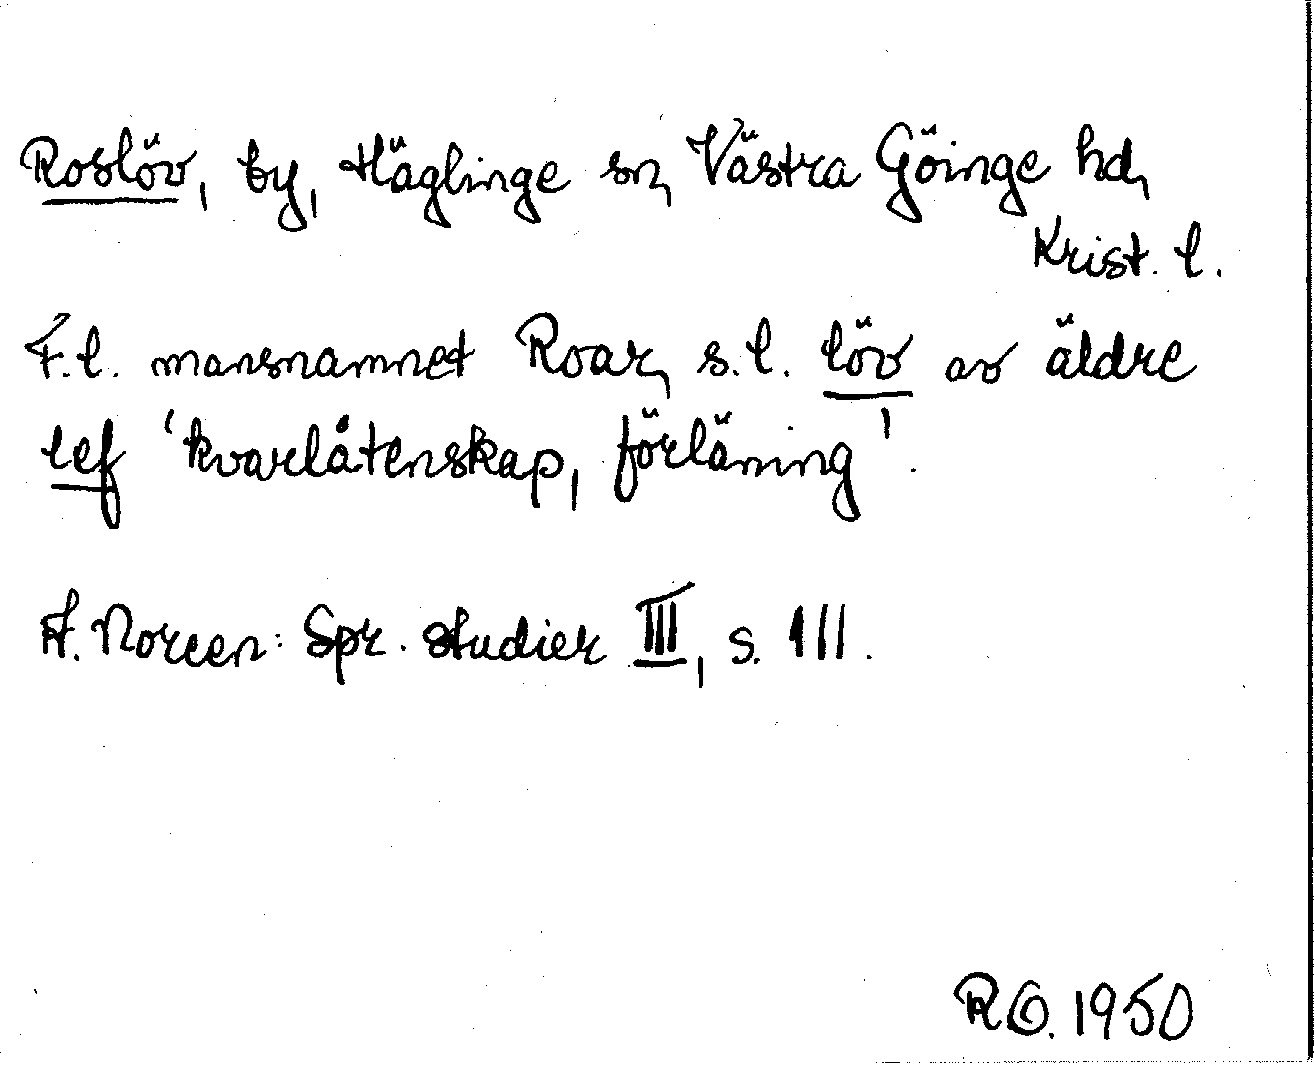 Roslöv, by, Häglinge sn, Västra Göinge hd,
Krist. l.
F.l. mansnamnet Roar, s.l. löv av äldre
lef 'kvarlåtenskap, förläning'.
A. Noreen: Spr. studier III, s. 111.
RO. 1950